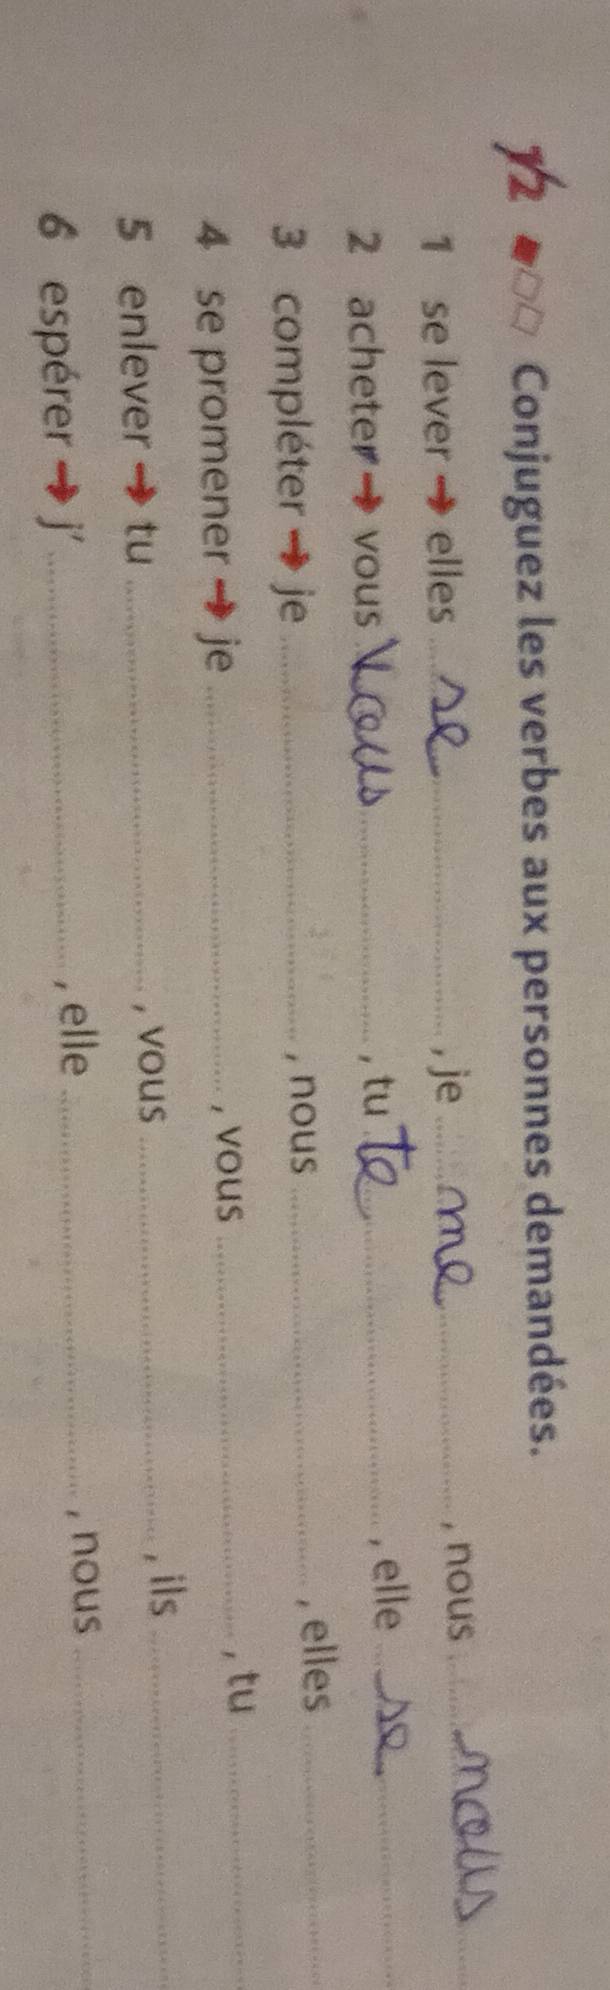 12 Conjuguez les verbes aux personnes demandées.
1 se lever → elles se, je me, nous nous
2 acheter → vous vous, tu te, elle se
3 compléter → je, nous, elles
4 se promener → je, vous, tu
5 enlever → tu, vous, ils
6 espérer → j', elle, nous